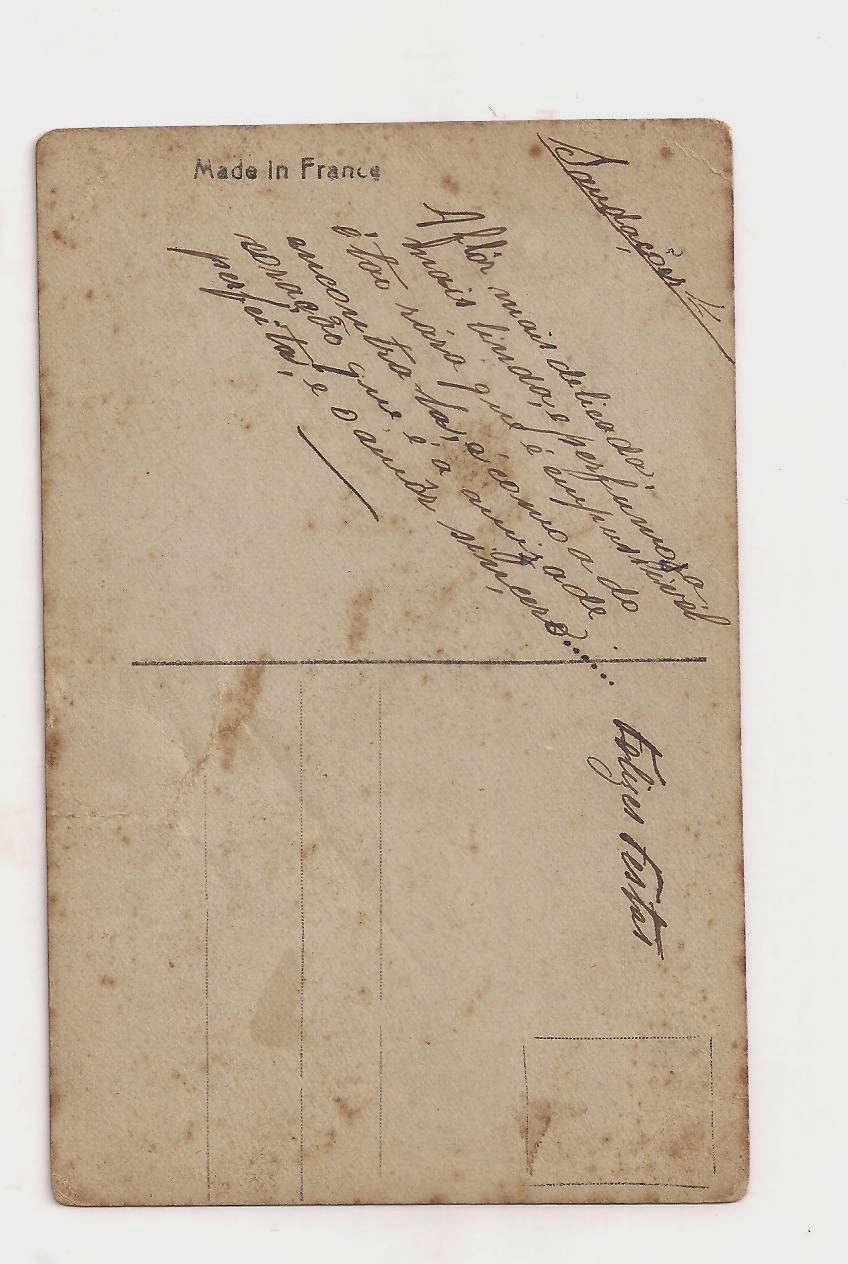 Made in France
Saudações
A flôr mais delicada,
mais linda, e perfumosa,
é tão raro que é empussivel
encontra la, é como a do
coração que é a amizade
perfeita, e o amôr sincero......
Felizes Festas